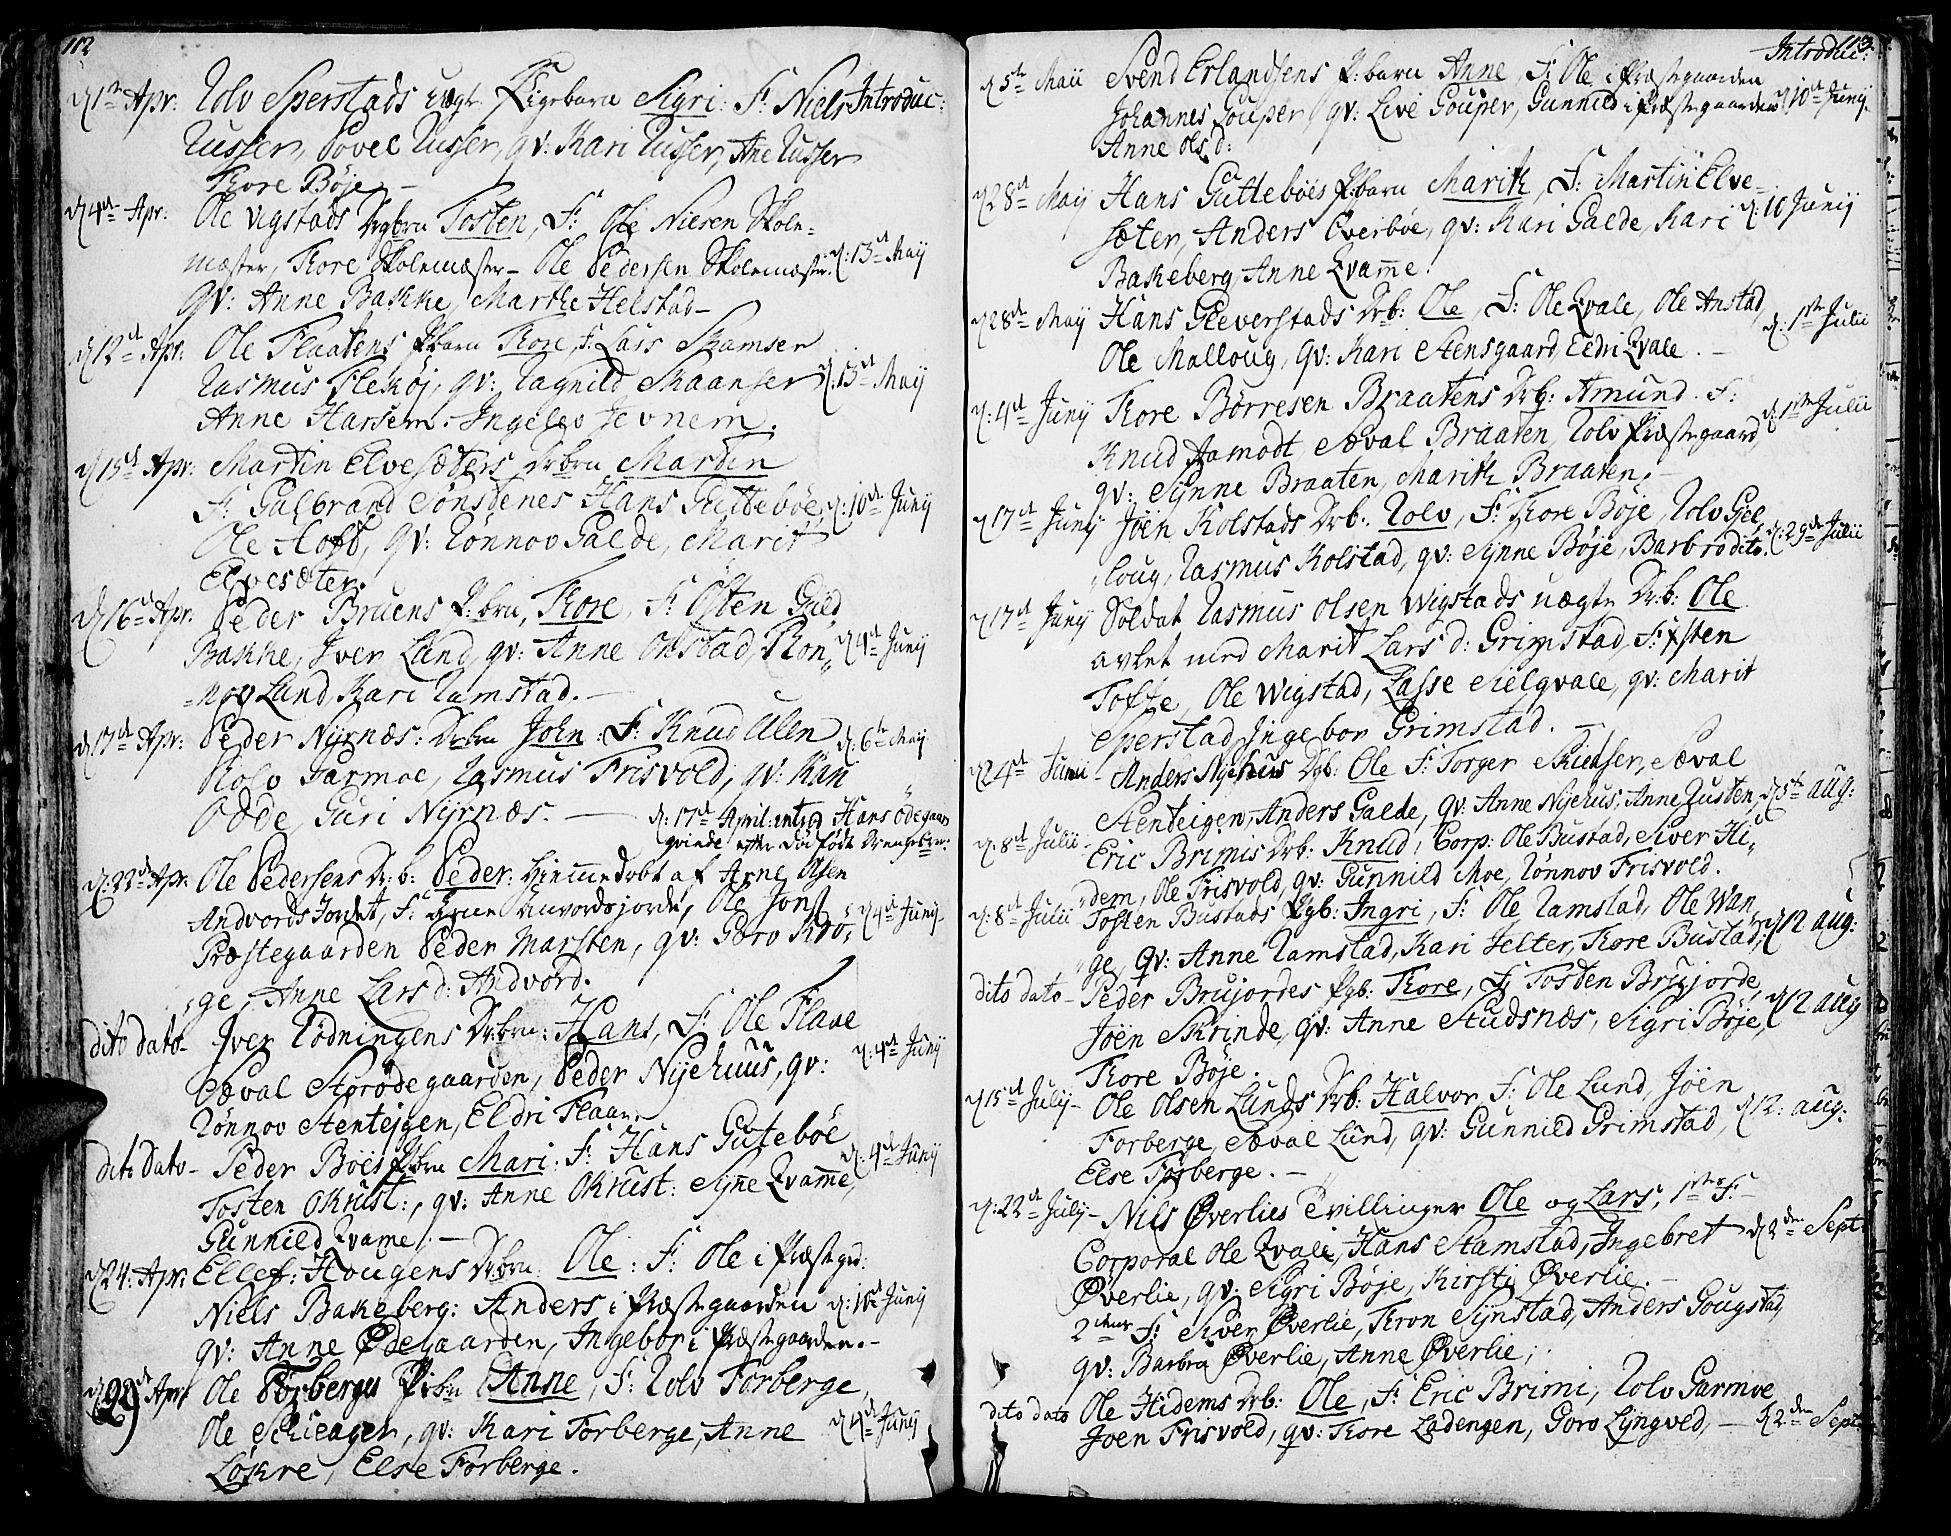 112
d 1ste Apr: Rolv Sperstads uægte Pigebarn Sigri: F: Niels Introduc:
Russer, Povel Russer, qv: Kari Russer, Ane Russer
Tore Bøje –
d 4de Apr: Ole Vigstads Drbrn Tosten, F: Ole Nielsen Skole-
mæster, Tore Skolemæster – Ole Pedersen Skolemæster d: 13de Maij
qv: Anne Bakke, Marthe Helstad –
d 12te Apr: Ole Flaatens Pbarn Tore, F: Lars Skamser
Rasmus Flekøj, qv: Ragnild Skaanser d: 13de Maij
Anne Harsem. Ingelev Jevnem.
d 15de Apr: Martin Elvesæters Drbrn Martin
F: Galbrand Sønstenes Hans Guttebøe, d: 10de Junij
Ole Hoft, qv: Rønnov Galde, Marit
Elvesæter.
d 16de Apr: Peder Bruens P:brn, Tore, F: Østen Gield
Bakke, Iver Lund, qv: Anne Onstad, Røn= d 4de Junij
=nov Lund, Kari Ramstad. –
d 17de Apr: Peder Nyrnæs: Drbrn John: F: Knud Ulen d: 6te Maij
Rolv Garmoe, Rasmus Frisvold, qv: Kari
Odde, Guri Nyrnæs. – d: 17de April: introd Hans Ødegaards
qvinde efter dødfødt Drengebrn:
d: 22de Apr: Ole Pedersens Dr: b: Peder: hjemmedøbt af Arne Olsen
Andvords Jordet, F: Arne Anvordsjorde, Ole Jons d 4de Junij
Præstegaarden Peder Marsten, qv: Goro Kro=
=ge, Anne Lars d: Andvord.
dito dato – Iver Rødningens Dr:brn: Hans, F: Ole Flaae
Sæval Storødegaarden, Peder Nijehuus, qv: d: 4de Junij
Rønnov Stenteigen, Eldri Flaae
dito dato – Peder Bøes Pbrn Mari: F: Hans Gutebøe d: 4de Junij
Tosten Okrust:, qv: Anne Okrust: Syñe Qvam̄e,
Gunnild Qvam̄e. –
d 24: Apr: Ellef: Hougens Drbrn: Ole: F: Ole i Præstegrd:
Niels Bakeberg: Anders i Præstegaarden d: 10de Junij
qv: Anne Ødegaarden, Ingebor i Præstegaarden. –
d 29de Apr Ole Forbergs P:brn Anne, F: Rolv Forberge,
Ole Schieager, qv: Kari Forberge, Anne d 4de Junij
Løkre, Else Forberge.
113
Introduc:
d 5te Maii Svend Erlandsens P: barn Anne, F: Ole i Præstegaarden
Johannes Gouper, qv: Live Gouper, Gunnild i Præstegaarden d 10de Junij
Anne Olsd:
d 28de Maij Hans Guttebøes Pbarn Marith, F: Martin Elve=
sæter, Anders Øverbøe, qv: Kari Galde, Kari d: 10 Junij
Bakeberg, Anne Qvam̄e.
d 28de Maij Hans Gleverstads Drb: Ole, F: Ole Qvale, Ole Anstad,
Ole Malloug, qv: Kari Stensgaard, Eldri Qvale. – d: 1ste Julii
d: 4de Junij Tore Børresen Braatens Drb: Amund. F:
Knud Aamodt, Sæval Braaten, Rolv Præstegaard, d: 1ste Julii
qv: Synne Braaten, Marith Braaten. –
d 17de Junij Joen Kolstads Drb: Rolv, F: Tore Bøje, Rolv Giel
loug, Rasmus Kolstad, qv: Synne Bøje, Barbro dito. d: 29de Julii
d 17de Junij Soldat Rasmus Olsen Wigstads uægte Dr.b: Ole
avlet med Marit Lars d: Grimstad, F: Østen
Tofte, Ole Wigstad, Lasse Sielqvale, qv: Marit
Sperstad, Ingebor Grimstad. –
d 24de Junii – Anders Nijehuus Drb: Ole F: Torger Skiedser, Sæval
Stenteigen, Anders Galde, qv: Anne Nijehus, Anne Rusten, d 5te aug:
d: 8de Julii – Eric Brimis Drb: Knud, Corp: Ole Bustad, Siver Hi=
=dem, Ole Frisvold, qv: Gunnild Moe, Rønnov Frisvold.
d: 8de Julii Tosten Bustads Pgb: Ingri, F: Ole Ramstad, Ole Wan
ge, qv: Anne Ramstad, Kari Selter, Tore Bustad, d 12 aug:
dito dato – Peder Brujordes Pgb: Tore, F: Tosten Brujorde,
Joen Skrinde, qv: Anne Studsnæs, Sigri Bøje, d 12 aug
Tore Bøje.
d 15de Julij – Ole Olsen Lunds Drb: Halvor, F: Ole Lund, Joen
Forberge, Sæval Lund, qv: Gunnild Grimstad, d 12: aug:
Else Forberge. –
d: 22de Julij – Nils Øverlies Tvillinger Ole og Lars, 1stes F:
Corporal Ole Qvale, Hans Stamstad, Ingebret d 2den Sept:
Øverlie, qv: Sigri Bøje, Kirsti Øverlie. –
2dens F: Siver Øverlie, Tron Synstad, Anders Gougstad,
qv: Barbra Øverlie, Anne Øverlie,
dito dato Ole Hidems Drb: Ole, F: Eric Brimi, Rolv Garmoe
Joen Frisvold, qv: Tore Ladengen, Goro Lyngved, – d 2den Sept: